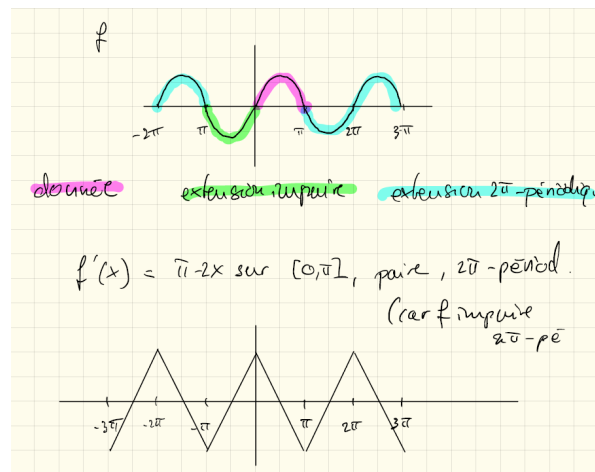 f
-2π π π 2π 3π
donnée extension impaire extension 2π-périodiq
f'(x) = π-2x sur [0,π], paire, 2π-périod.
(car f impaire
2π-pé
-3π -2π -π π 2π 3π